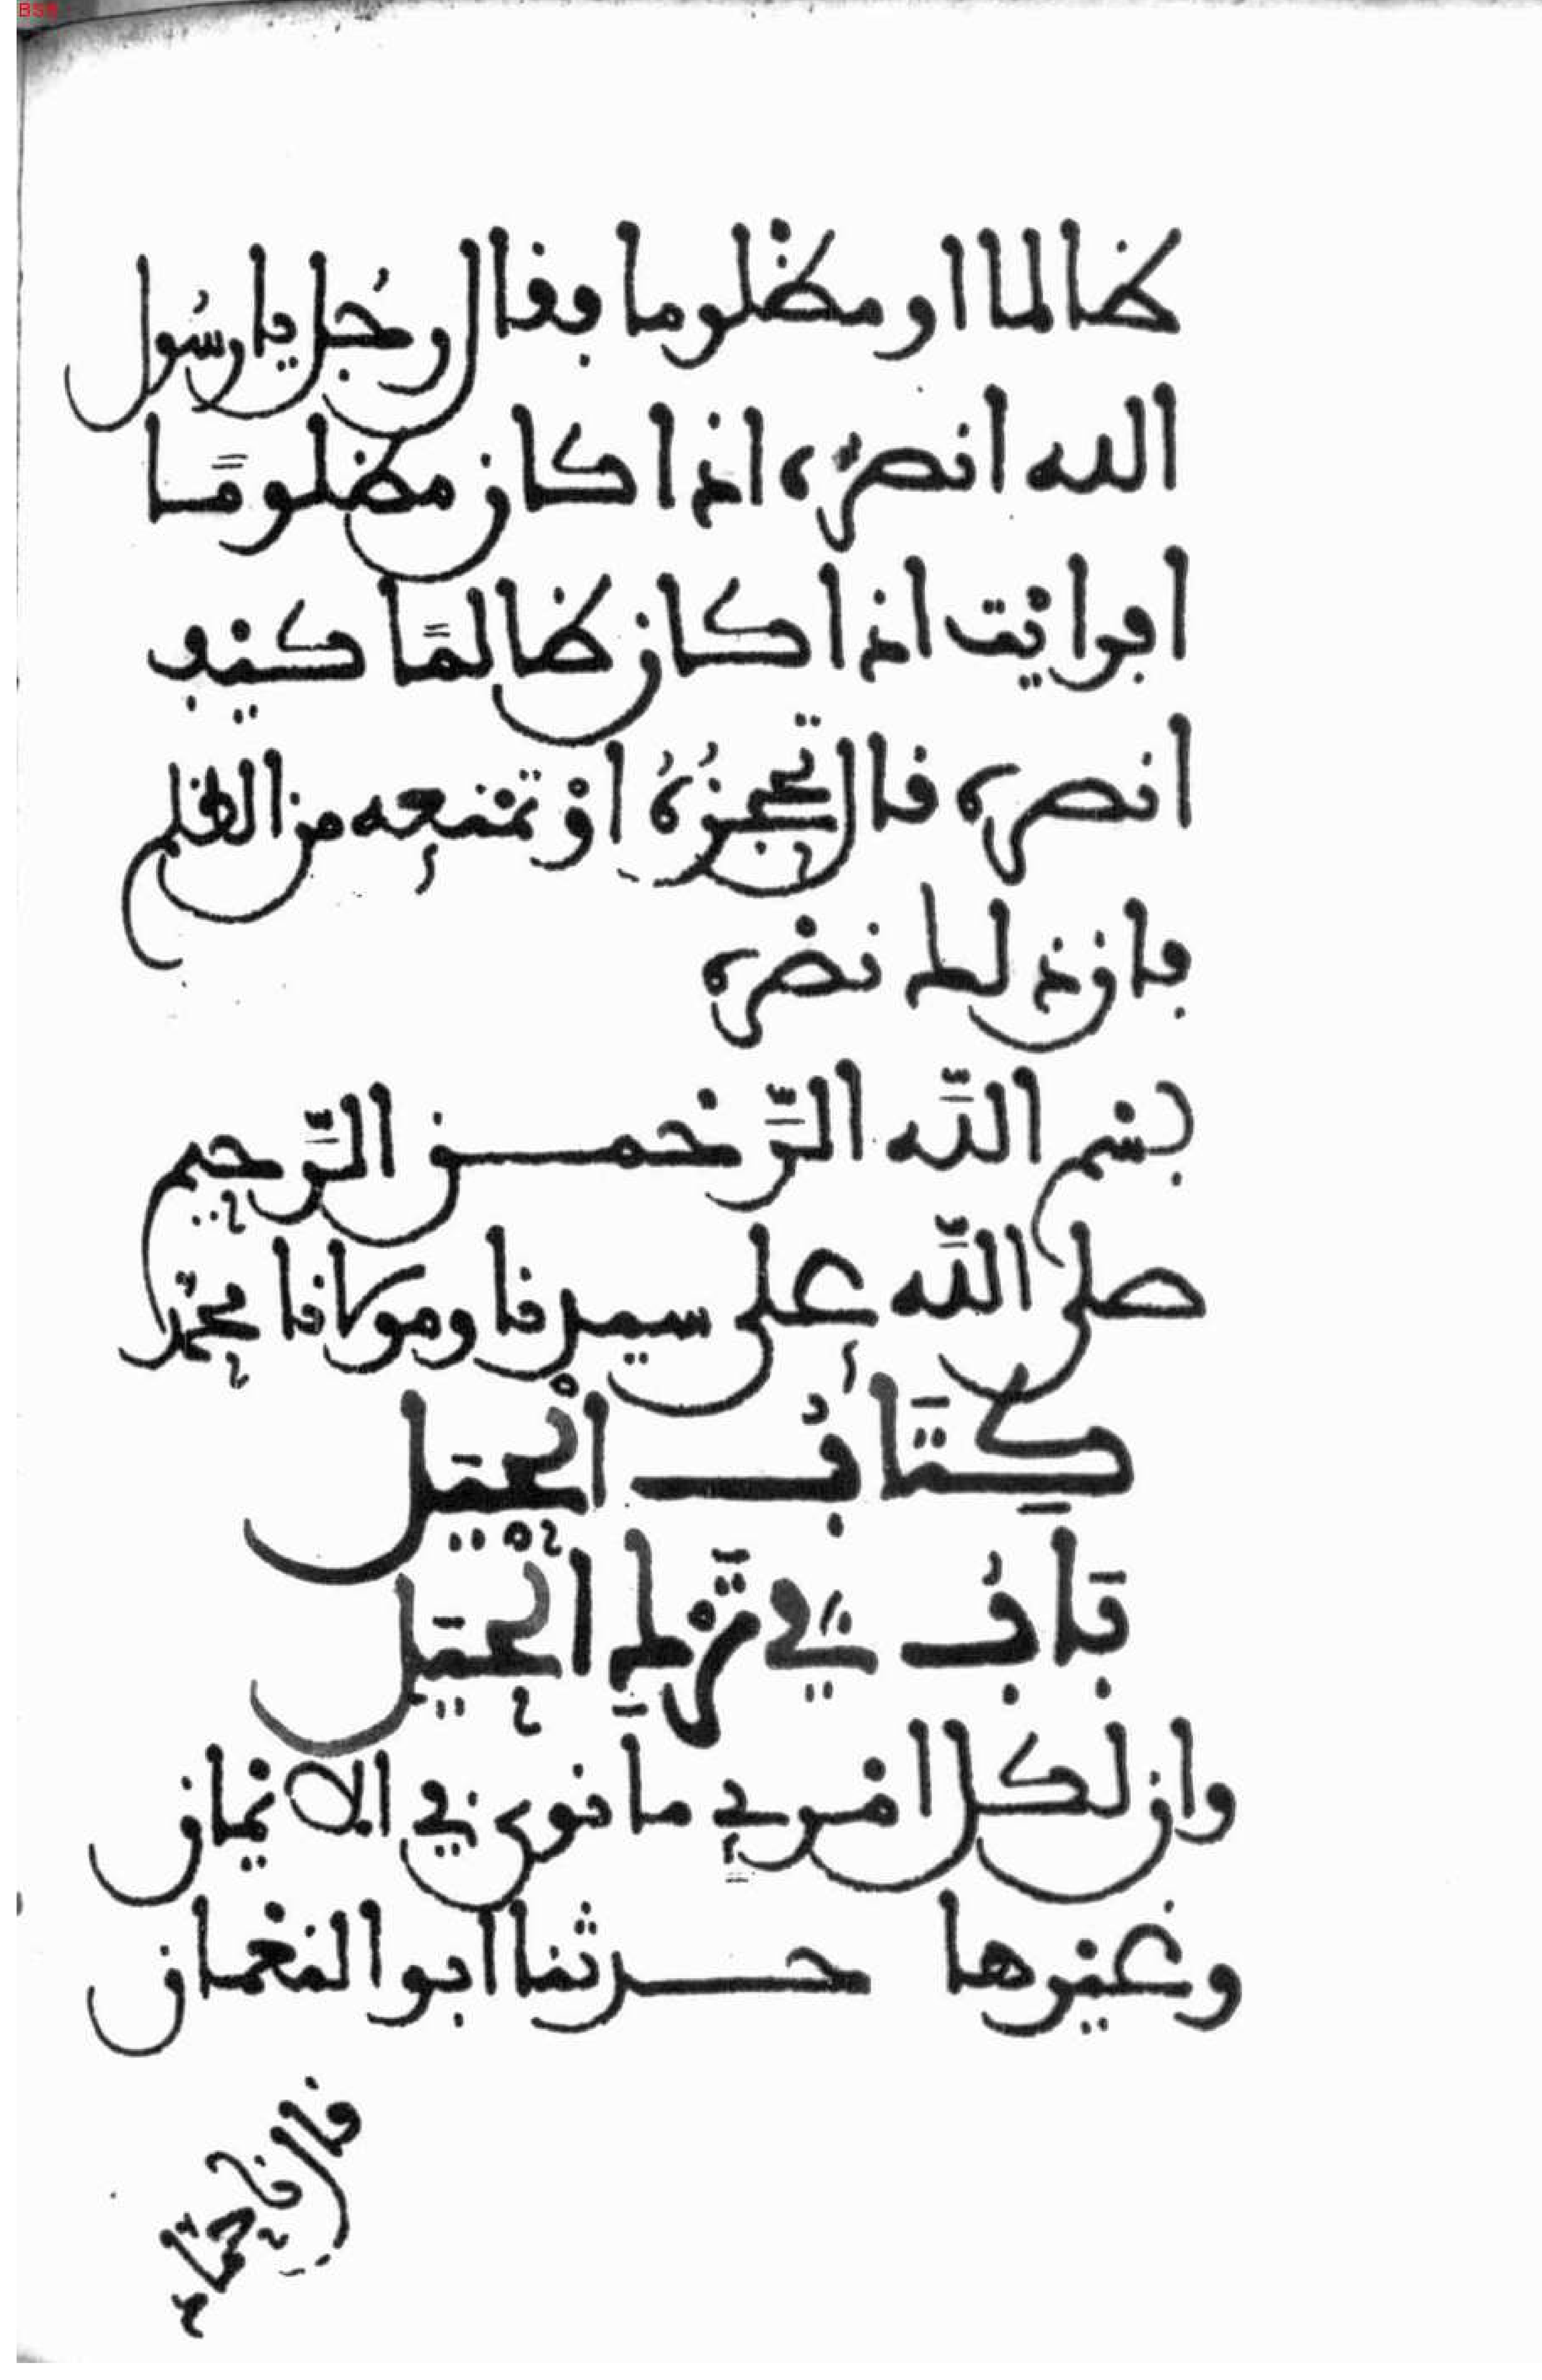 BSB
ظالما او مظلوما فقال رجُل يا رسُول
الله انصره اذا كان مظلومًا
افرايْت اذا كان ظالمًا كيْف
انصره قال تحجزُهُ اوْ تمْنعه من الظلم
فان ذلك نصْره
بسْم اللَّه الرَّحْمن الرَّحيم
صلى اللَّه على سيدنا ومولانا محمّد
كِتَابُ الْحِيَل
بَابُ فِي تَرْكِ الْحِيَل
وان لكل امْرئٍ ما نوى في الايْمان
وغيْرها حدثنا ابو النعْمان
قال نا حمّاد